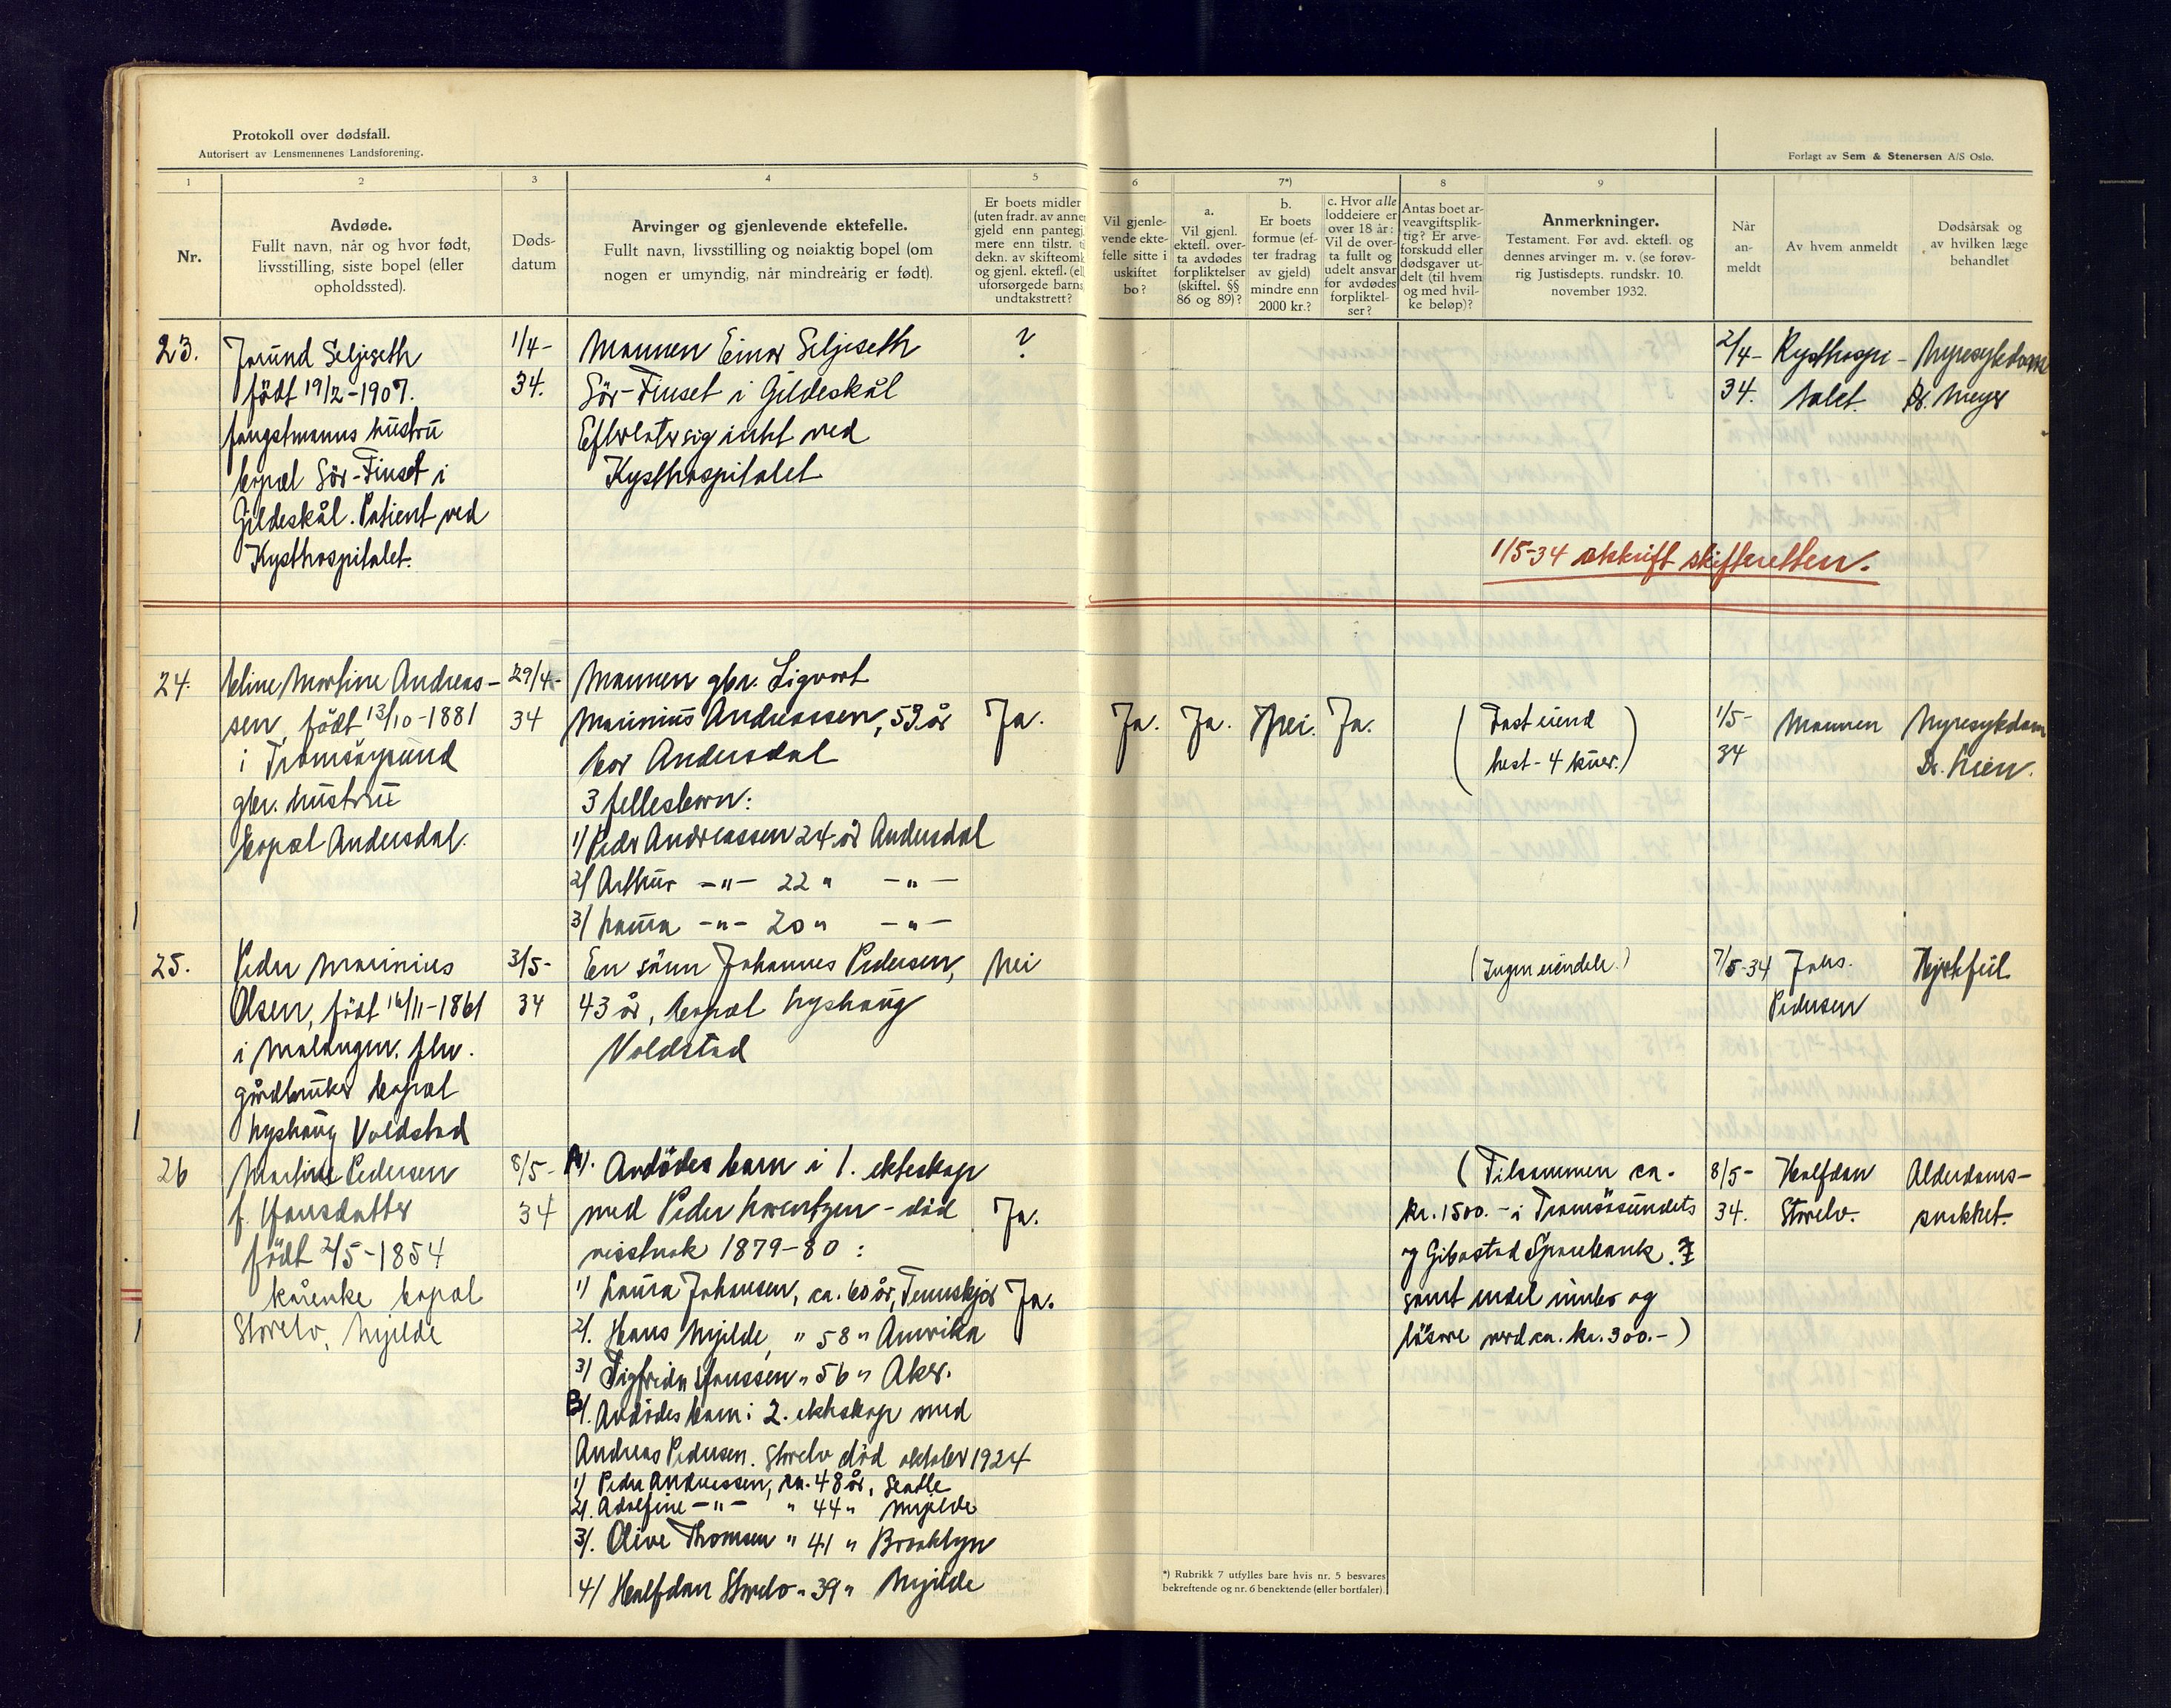 Protokoll over dødsfall.
Autorisert av Lensmennenes Landsforening.
Forlagt av Sem & Stenersen A/S Oslo.
1
2
3
4
5
6
7*)
8
9
Nr.
Avdøde.
Fullt navn, når og hvor født,
livsstilling, siste bopel (eller
opholdssted).
Døds-
datum
Arvinger og gjenlevende ektefelle.
Fullt navn, livsstilling og nøiaktig bopel (om
nogen er umyndig, når mindreårig er født).
Er boets midler
(uten fradr. av annen
gjeld enn pantegj.
mere enn tilstr. ti
dekn. av skifteomk
og gjenl. ektef. (ell
uforsørgede barns
undtakstrett?
Vil gjenle-
vende ekte-
felle sitte i
uskiftet
bo?
a.
Vil gjenl.
ektefl. over-
ta avdødes
forpliktelser
(skiftel. §§
86 og 89)?
b.
Er boets
formue (ef-
ter fradrag
av gjeld)
mindre enn
2000 kr.?
c. Hvor alle
loddeiere er
over 18 år:
Vil de over-
ta fullt og
udelt ansvar
for avdødes
forpliktel-
ser?
Antas boet ar-
veavgiftsplik-
tig? Er arve-
forskudd eller
dødsgaver ut-
delt (til hvem
og med hvil-
ke beløp)?
Anmerkninger.
Testament. Før avd. ektefl. og
dennes arvinger m. v. (se forøv-
rig Justisdepts. rundskr. 10.
november 1932.
Når
an-
meldt
Av hvem anmeldt
Dødsårsak og
av hvilken læge
behandlet
23.
Jorund Seljeseth
født 19/2-1907.
fangstmanns hustru
bopæl Sör-Finset i
Gildeskål. Patient ved
Kysthospitalet.
1/4-
34.
Mannen Einar Seljeseth
Sör-Finset i Gildeskål
Efterlater sig intet ved
Kysthospitalet
?
2/4-
34.
Kysthospi-
talet.
Nyresykdomme
Dr. Meyer
1/5-34 utskrift skifteretten.
24.
Eline Martine Andreas-
sen, født 13/10-1881
i Tromsöysund
gbr. hustru
bopæl Andersdal.
29/4-
34
Mannen gbr. Sigvart
Marinius Andreassen, 59 år
bor Andersdal
3 fellesbarn:
1/ Peder Andreassen 24 år Andersdal
2/ Arthur -"- 22 " -"-
3/ Laura -"- 20 " -"-
Ja.
Ja.
Ja.
Nei.
Ja.
(Fast eiend
hest - 4 kuer.)
1/5-
34
Mannen
Nyresykdom
Dr. Lien.
25.
Peder Marinius
Olsen, født 16/11-1861
i Malangen. fhv.
gårdbruker bopæl
Lyshaug Voldstad
3/5-
34
En sönn Johannes Pedersen,
43 år, bopæl Lyshaug
Voldstad
Nei
(Ingen eiendele.)
7/5-34
Johs.
Pedersen
Hjertefeil
26
Martine Pedersen
f. Hansdatter
født 2/5-1854
kårenke bopæl
Storelv, Mjelde
8/5-
34
A/. Avdödes barn i 1. ekteskap
med Peder Lorentzen - död
visstnok 1879-80:
1/ Laura Johansen, ca. 60 år, Tennskjær
2/. Hans Mjelde, " 58 " Amerika
3/ Sigfrida Hanssen " 56 " Aker.
B/. Avdödes barn i 2. ekteskap med
Andreas Pedersen. Storelv död oktober 1924
1/ Peder Andreassen, ca. 48 år, Seatle
2/. Adolfine -"- " 44 " Mjelde
3/. Olive Thomsen " 41 " Brooklyn
4/ Halfdan Storelv " 39 " Mjelde
Ja.
Ja.
(Tilsammen ca.
kr. 1500.- i Tromsösundets
og Gibostad Sparebank.
samt endel innbo og
lösöre verd ca. kr. 300.-)
8/5-
34.
Halfdan
Storelv.
Alderdoms-
svakhet.
*) Rubrikk 7 utfylles bare hvis nr. 5 besvares
bekreftende og nr. 6 benektende (eller bortfaler).